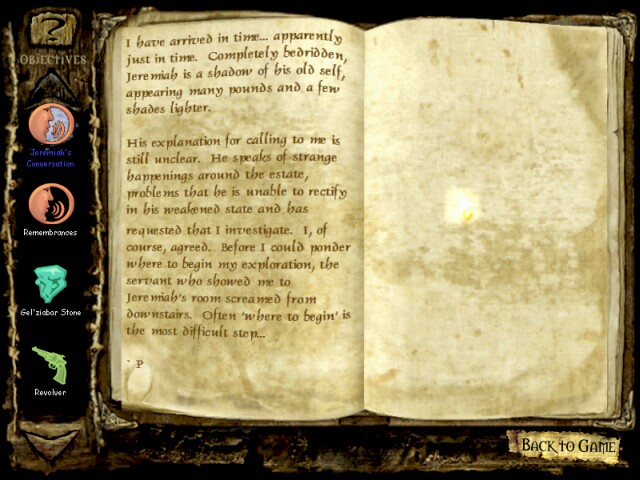 OBJECTIVES
Jeremiah's
Conversation
Remembrances
Gel'ziabar Stone
Revolver
I have arrived in time... apparently
just in time. Completely bedridden,
Jeremiah is a shadow of his old self,
appearing many pounds and a few
shades lighter.
His explanation for calling to me is
still unclear. He speaks of strange
happenings around the estate,
problems that he is unable to rectify
in his weakened state and has
requested that I investigate. I, of
course, agreed. Before I could ponder
where to begin my exploration, the
servant who showed me to
Jeremiah's room screamed from
downstairs. Often 'where to begin' is
the most difficult step...
- P
BACK TO GAME